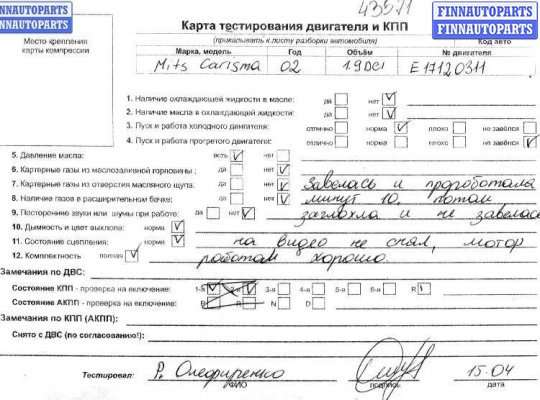 FINNAUTOPARTS
FINNAUTOPARTS
43571
FINNAUTOPARTS
FINNAUTOPARTS
Место крепления карты компрессии
Карта тестирования двигателя и КПП
(прикалывать к листу разборки автомобиля)
Код авто
Марка, модель Год Объём № двигателя
Mits Carisma 02 1.9DCI E17120311
1. Наличие охлаждающей жидкости в масле: да нет
2. Наличие масла в охлаждающей жидкости: да нет
3. Пуск и работа холодного двигателя: отлично норма плохо не завёлся
4. Пуск и работа прогретого двигателя: отлично норма плохо не завёлся
5. Давление масла: есть нет
6. Картерные газы из маслозаливной горловины: да нет
7. Картерные газы из отверстия масляного щупа: да нет Завелась и проработала
8. Наличие газов в расширительном бачке: да нет минут 10, потом
9. Посторонние звуки или шумы при работе: да нет заглохла и не завелась
10. Дымность и цвет выхлопа: норма
11. Состояние сцепления: норма на видео не снял, мотор
12. Комплектность полная работал хорошо.
Замечания по ДВС:
Состояние КПП - проверка на включение: 1-я 2-я 3-я 4-я 5-я 6-я R
Состояние АКПП - проверка на включение: P R N D
Замечания по КПП (АКПП):
Снято с ДВС (по согласованию!):
Тестировал: Р. Олефиренко 15.04
ФИО подпись дата